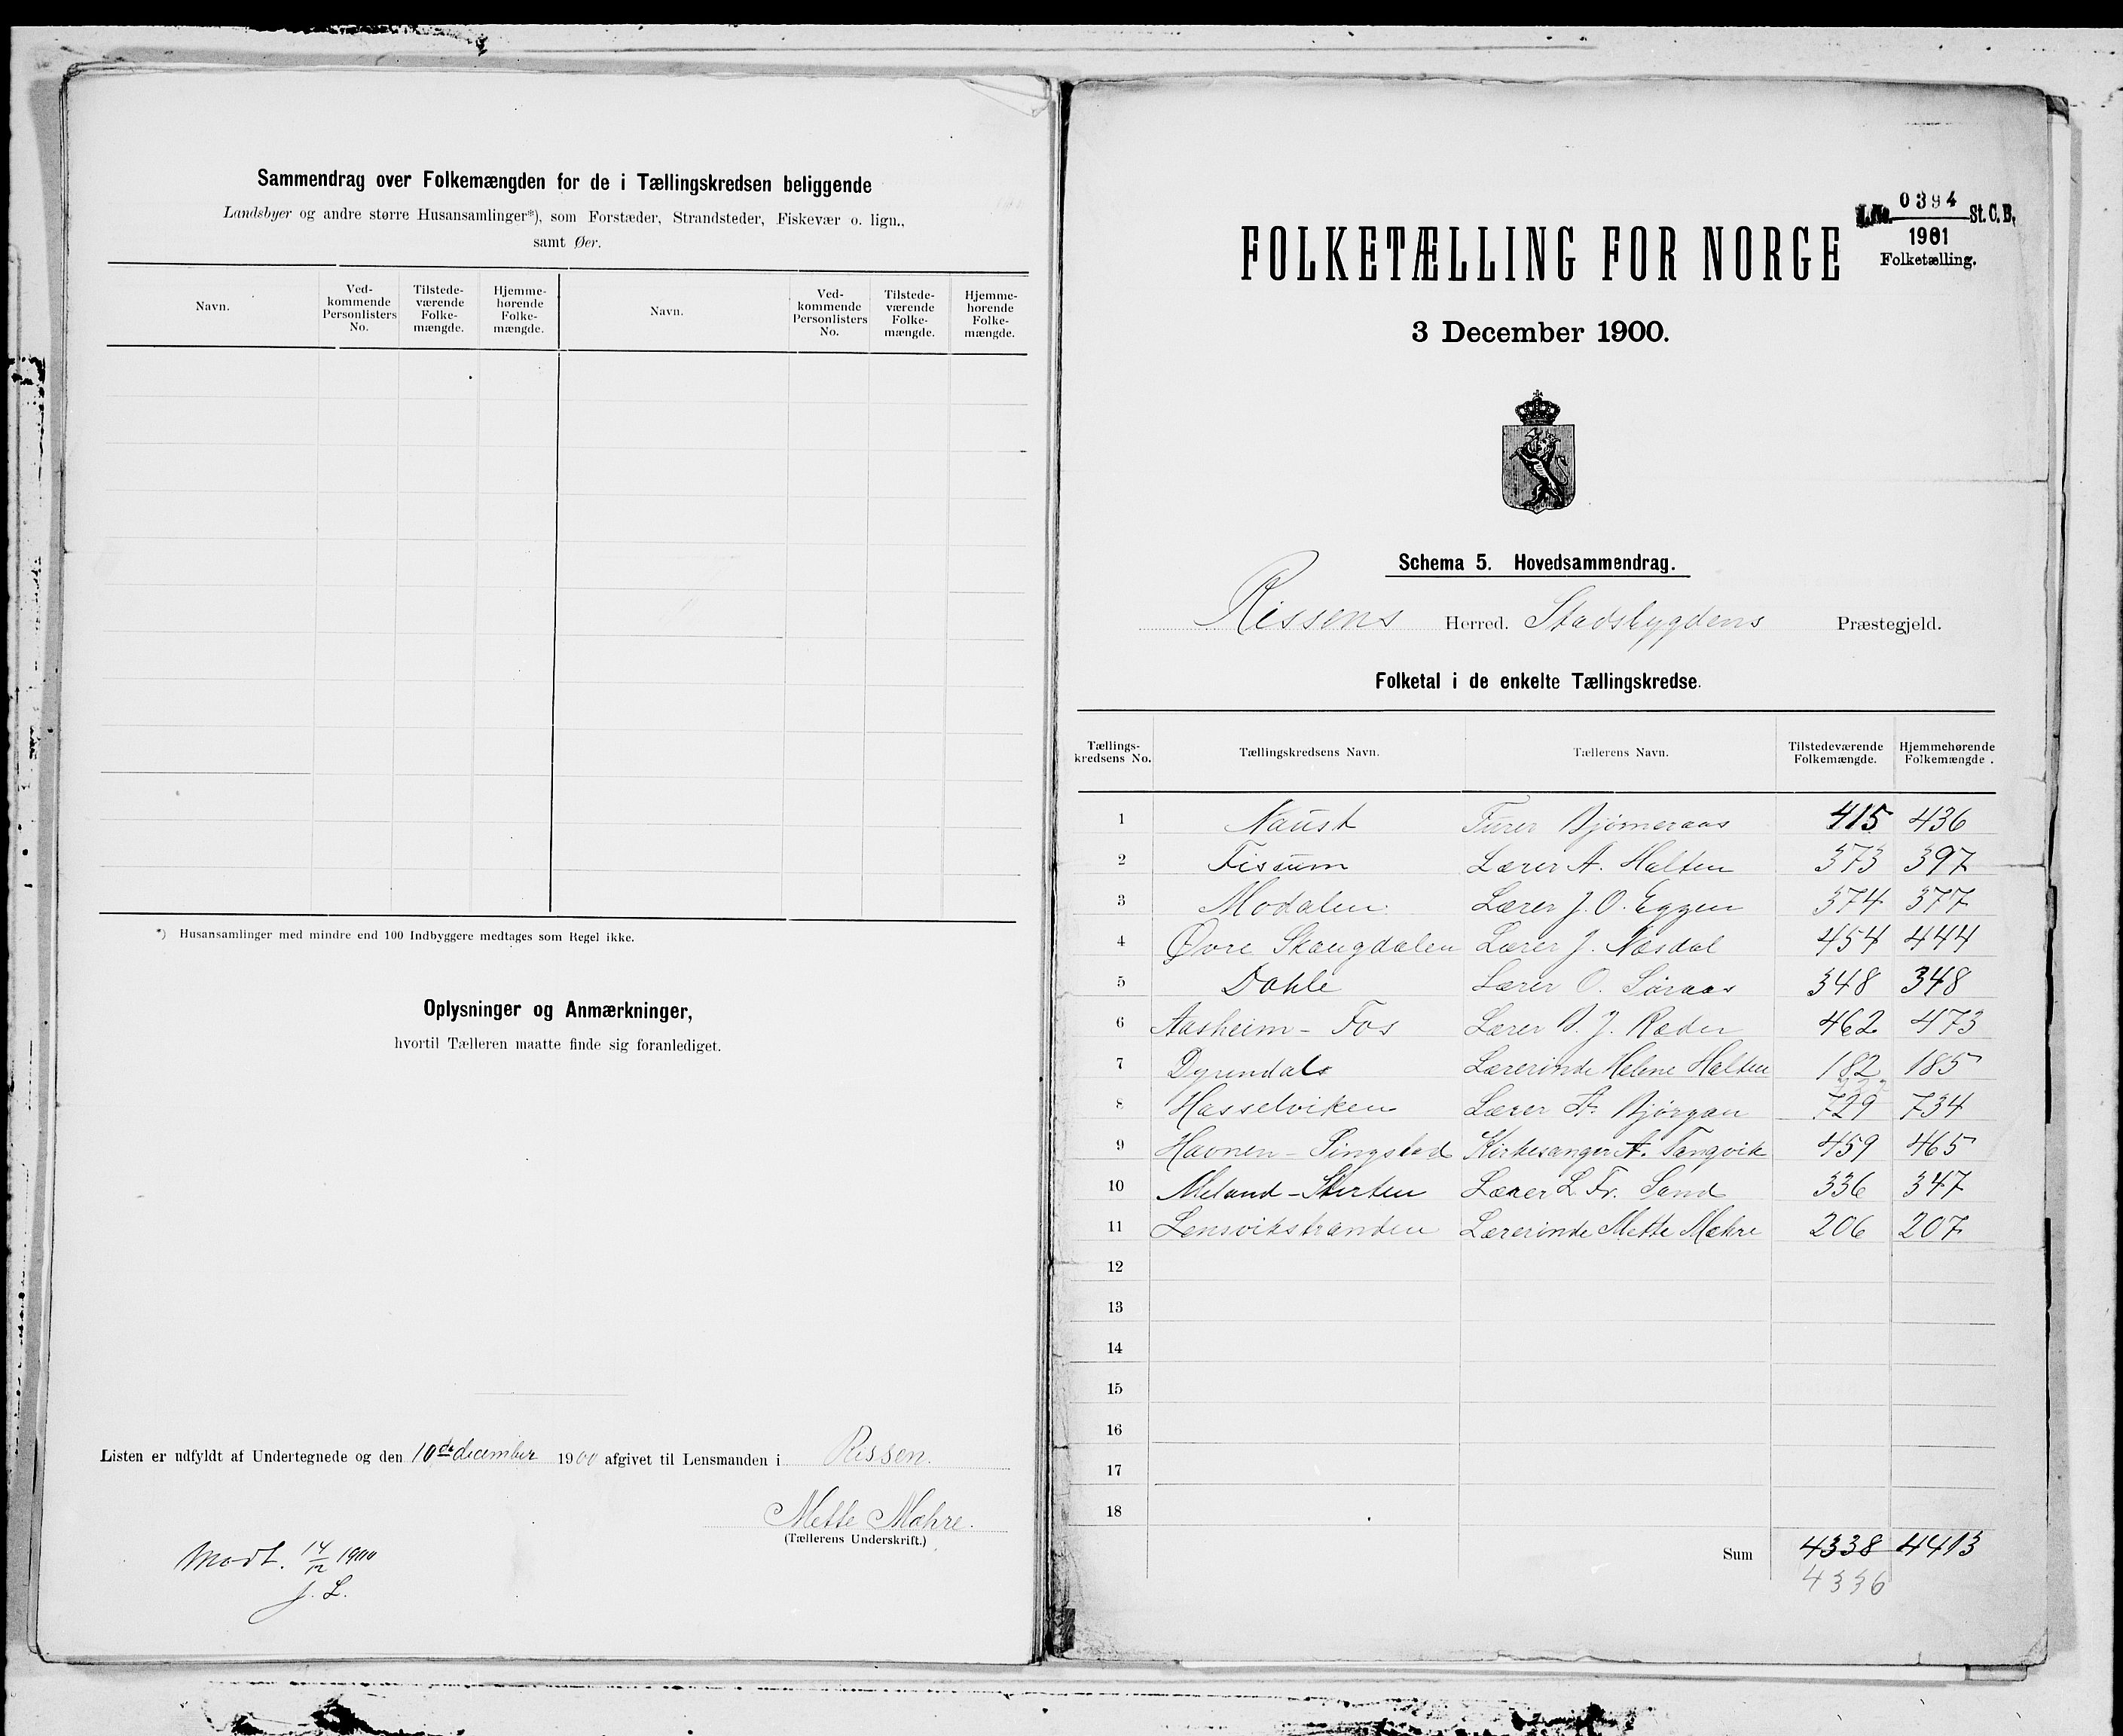 Sammendrag over Folkemængden for de i Tællingskredsen beliggende
Landsbyer og andre større Husansamlinger*), som Forstæder, Strandsteder, Fiskevær o. lign.,
samt Øer.
Navn. Ved-kommende Personlisters No. Tilstede-værende Folke-mængde. Hjemme-hørende Folke-mængde. Navn. Ved-kommende Personlisters No. Tilstede-værende Folke-mængde. Hjemme-hørende Folke-mængde.
*) Husansamlinger med mindre end 100 Indbyggere medtages som Regel ikke.
Oplysninger og Anmærkninger,
hvortil Tælleren maatte finde sig foranlediget.
Listen er udfyldt af Undertegnede og den 10de december 1900 afgivet til Lensmanden i Rissen.
Mette Mæhre.
(Tællerens Underskrift.)
Modt. 14/12 1900
J. L.
L.No. 0394 St. C. B.
1901
Folketælling.
FOLKETÆLLING FOR NORGE
3 December 1900.
Schema 5. Hovedsammendrag.
Rissens Herred. Stadsbygdens Præstegjeld.
Folketal i de enkelte Tællingskredse.
Tællings-kredsens No. Tællingskredsens Navn. Tællerens Navn. Tilstedeværende Folkemængde. Hjemmehørende Folkemængde.
1 Naust Bjørneraas 415 436
2 Fissum Lærer A. Halten 373 397
3 Modalen Lærer J. O. Eggen 374 377
4 Øvre Skaugdalen Lærer J. Næsdal 454 444
5 Dahle Lærer O. Søraas 348 348
6 Aasheim - Fos Lærer B. J. Ræder 462 473
7 Dyrendal Lærerinde Helene Halten 182 185
8 Hasselviken Lærer A. Bjørgan 729 734
9 Havnen - Ringstad Kirkesanger A. Tangvik 459 465
10 Meland - Sturten Lærer L. Fr. Sand 336 347
11 Lensvikstranden Lærerinde Mette Mæhre 206 207
12
13
14
15
16
17
18
Sum 4338 4413
4336